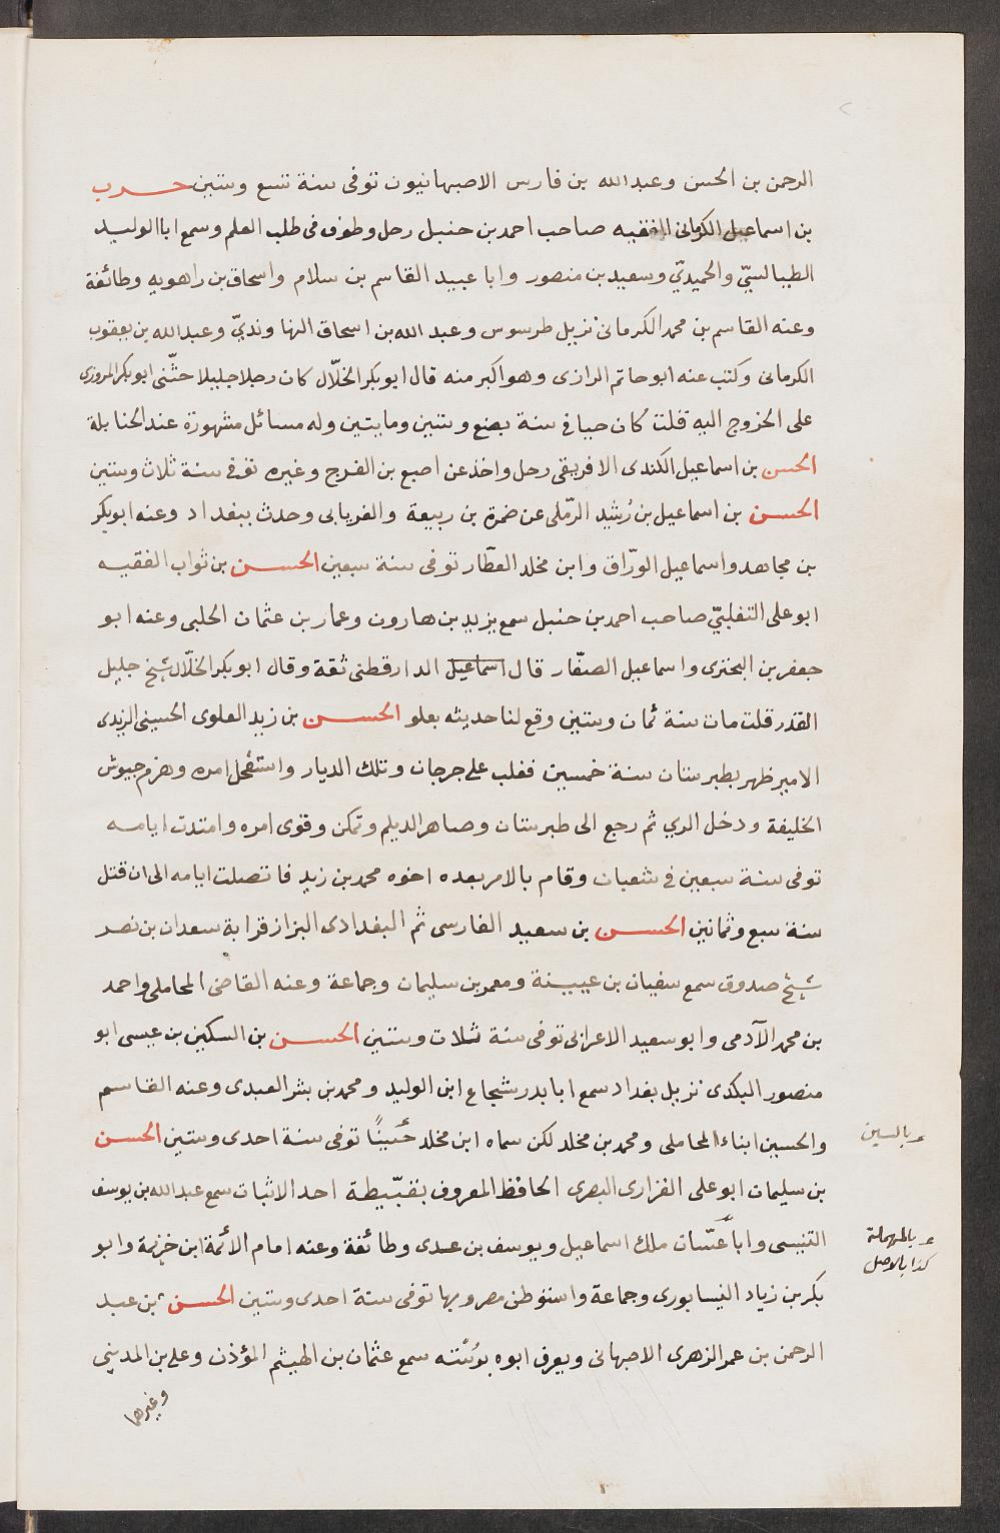 الرحمن بن الحسن وعبدالله بن فارس الاصبهانيون توفى سنة تسع وستين حرب
بن اسماعيل الكرمانى الفقيه صاحب احمد بن حنبل رحل وطوف فى طلب العلم وسمع ابا الوليد
الطيبالسيّ والحميديّ وسعيد بن منصور وابا عبيد القاسم بن سلام واسحاق بن راهويه وطائفة
وعنه القاسم بن محمد الكرمانى نزيل طرسوس وعبد الله بن اسحاق النهاونديّ وعبدالله بن يعقوب
الكرمانى وكتب عنه ابو حاتم الرازى وهو اكبر منه قال ابو بكر الخلّال كان رجلا جليلا حثّنى ابو بكر المروزى
على الخروج اليه قلت كان حيا فى سنة بضع وستين ومايتين وله مسائل مشهورة عند الحنابلة
الحسن بن اسماعيل الكندى الافريقى رحل واخذ عن اصبع بن الفرج وغيره توفى سنة ثلاث وستين
الحسن بن اسماعيل بن رُشيد الرّملى عن ضمرة بن ربيعة والفريابى وحدث ببغداد وعنه ابو بكر
بن مجاهد واسماعيل الورّاق وابن مخلد العطّار توفى سنة سبعين الحسن بن ثواب الفقيه
ابو على التغلبيّ صاحب احمد بن حنبل سمع يزيد بن هارون وعمار بن عثمان الحلبى وعنه ابو
جعفر بن البخترى واسماعيل الصفّار قال اسماعيل الدارقطنى ثقة وقال ابو بكر الخلّال شيخ جليل
القدر قلت مات سنة ثمان وستين وقع لنا حديثه بعلو الحسن بن زيد العلوى الحسينى الزيدى
الامير ظهر بطبرستان سنة خمسين فغلب على جرجان وتلك الديار واستفحل امره وهزم جيوش
الخليفة ودخل الري ثم رجع الى طبرستان وصاهر الديلم وتمكن وقوى امره وامتدت ايامه
توفى سنة سبعين فى شعبان وقام بالامر بعده اخوه محمد بن زيد فاتصلت ايامه الى ان قتل
سنة سبع وثمانين الحسن بن سعيد الفارسى ثم البغدادى البزاز قرابة سعدان بن نصر
شيخ صدوق سمع سفيان بن عيينة ومعمر بن سليمان وجماعة وعنه القاضى المحاملى واحمد
بن محمد الآدمى وابو سعيد الاعرابى توفى سنة ثلاث وستين الحسن بن السكين بن عيسى ابو
منصور البكدى نزيل بغداد سمع ابا بدر شجاع ابن الوليد ومحمد بن بشر العبدى وعنه القاسم
والحسين ابناء المحاملى ومحمد بن مخلد لكن سماه ابن مخلد حُسَينًا توفى سنة احدى وستين الحسن
بن سليمان ابو على الفزارى البصرى الحافظ المعروف بقبّيطة احد الاثبات سمع عبدالله بن يوسف
التنيسى وابا غسّان ملك اسماعيل ويوسف بن عدى وطائفة وعنه امام الائمة ابن خزيمة وابو
بكر بن زياد النيسابورى وجماعة واستوطن مصر وبها توفى سنة احدى وستين الحسن بن عبد
الرحمن بن عمر الزهرى الاصبهانى ويعرف ابوه بوُسْته سمع عثمان بن الهيثم المؤذن وعلى بن المدينى
وغيرهما
وبالسين
وبالمهملة
كذا بالاصل